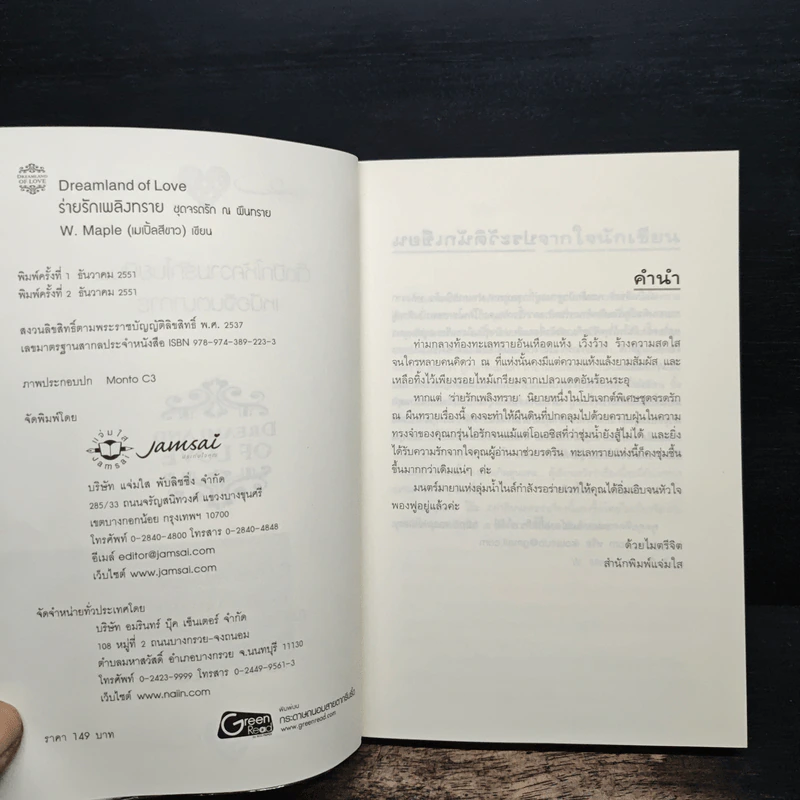 DREAMLAND
OF LOVE
Dreamland of Love
ร่ายรักเพลิงทราย ชุดจรดรัก ณ ผืนทราย
W. Maple (เมเปิ้ลสีขาว) เขียน
พิมพ์ครั้งที่ 1 ธันวาคม 2551
พิมพ์ครั้งที่ 2 ธันวาคม 2551
สงวนลิขสิทธิ์ตามพระราชบัญญัติลิขสิทธิ์ พ.ศ. 2537
เลขมาตรฐานสากลประจำหนังสือ ISBN 978-974-389-223-3
ภาพประกอบปก Monto C3
จัดพิมพ์โดย
แจ่มใส
Jamsai
Jamsai
บริษัท แจ่มใส พับลิชชิ่ง จำกัด
285/33 ถนนจรัญสนิทวงศ์ แขวงบางขุนศรี
เขตบางกอกน้อย กรุงเทพฯ 10700
โทรศัพท์ 0-2840-4800 โทรสาร 0-2840-4848
อีเมล์ editor@jamsai.com
เว็บไซต์ www.jamsai.com
จัดจำหน่ายทั่วประเทศโดย
บริษัท อมรินทร์ บุ๊ค เซ็นเตอร์ จำกัด
108 หมู่ที่ 2 ถนนบางกรวย-จงถนอม
ตำบลมหาสวัสดิ์ อำเภอบางกรวย จ.นนทบุรี 11130
โทรศัพท์ 0-2423-9999 โทรสาร 0-2449-9561-3
เว็บไซต์ www.naiin.com
Green
Read
พิมพ์บน
กระดาษถนอมสายตากรีนรี้ด
www.greenread.com
ราคา 149 บาท
คำนำ
ท่ามกลางท้องทะเลทรายอันเหือดแห้ง เวิ้งว้าง ร้างความสดใส
จนใครหลายคนคิดว่า ณ ที่แห่งนั้นคงมีแต่ความแห้งแล้งยามสัมผัส และ
เหลือทิ้งไว้เพียงรอยไหม้เกรียมจากเปลวแดดอันร้อนระอุ
หากแต่ 'ร่ายรักเพลิงทราย' นิยายหนึ่งในโปรเจกต์พิเศษชุดจรดรัก
ณ ผืนทรายเรื่องนี้ คงจะทำให้ผืนดินที่ปกคลุมไปด้วยคราบฝุ่นในความ
ทรงจำของคุณกรุ่นไอรักจนแม้แต่โอเอซิสที่ว่าชุ่มน้ำยังสู้ไม่ได้ และยิ่ง
ได้รับความรักจากใจคุณผู้อ่านมาช่วยรดริน ทะเลทรายแห่งนี้ก็คงชุ่มชื้น
ขึ้นมากกว่าเดิมแน่ๆ ค่ะ
มนตร์มายาแห่งลุ่มน้ำไนล์กำลังรอร่ายเวทให้คุณได้อิ่มเอิบจนหัวใจ
พองฟูอยู่แล้วค่ะ
ด้วยไมตรีจิต
สำนักพิมพ์แจ่มใส